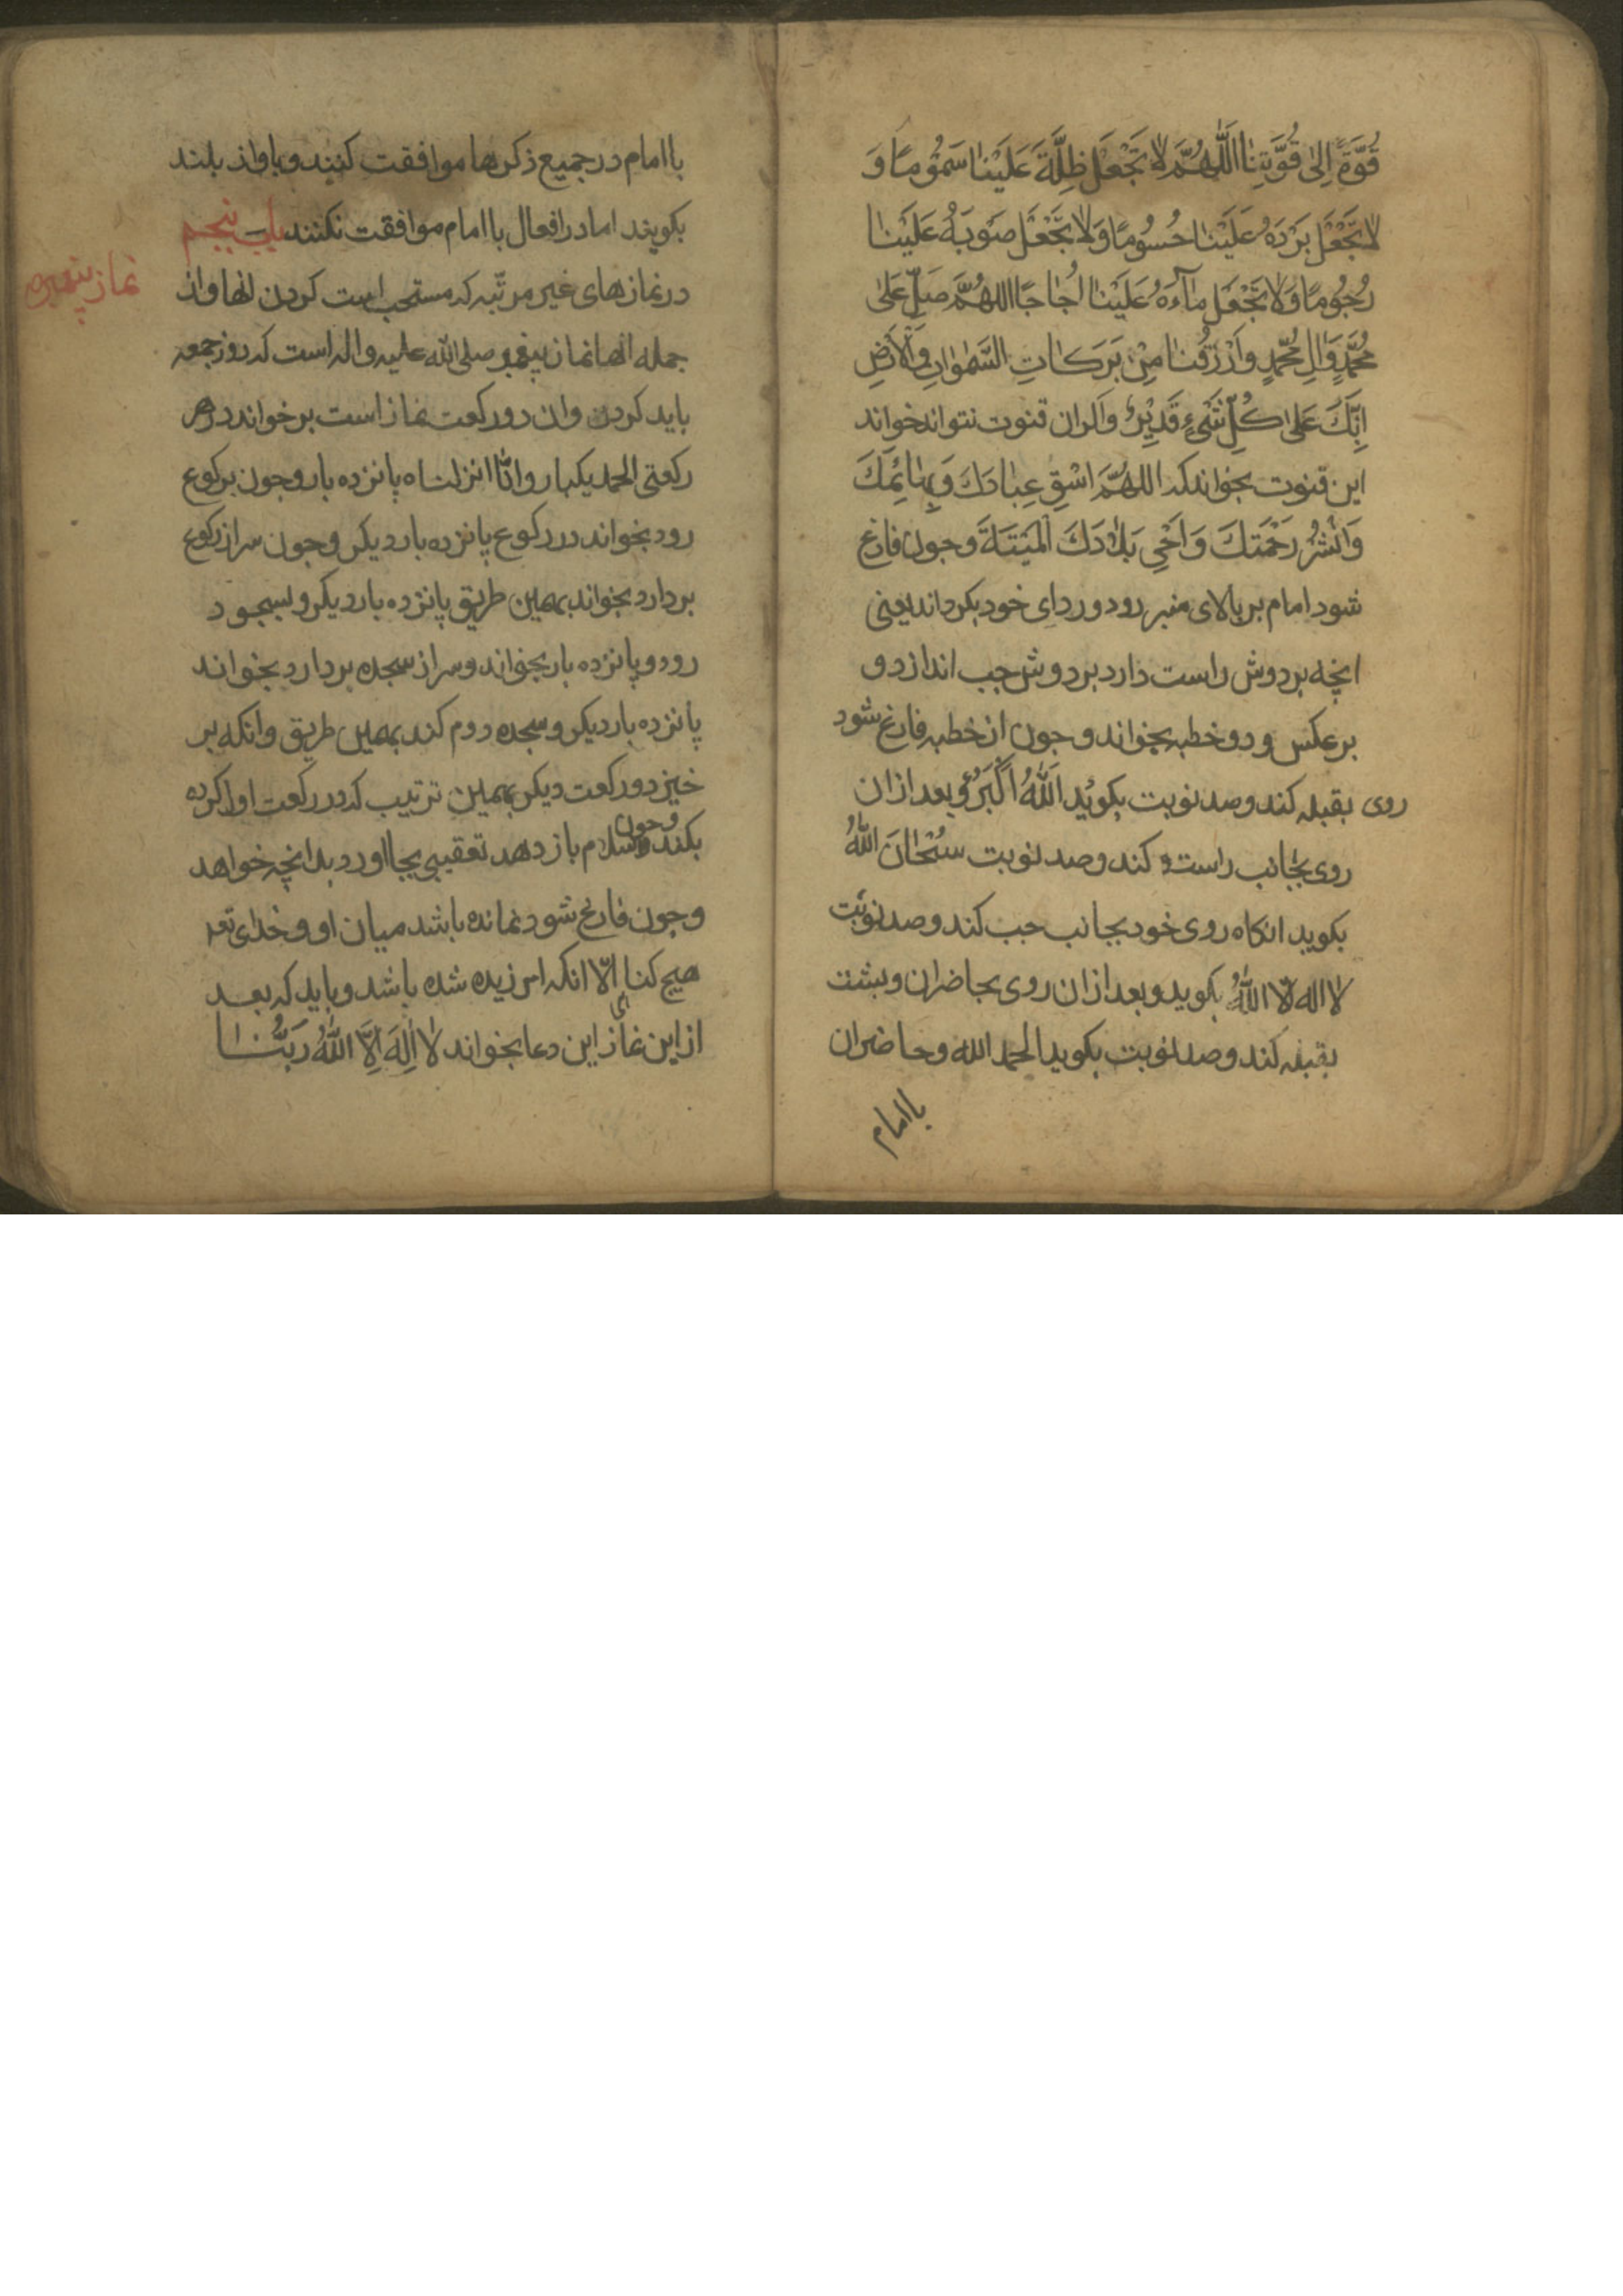 قُوَّةً اِلىٰ قُوَّتِنٰا اَللّٰهُمَّ لٰا تَجْعَلْ ظِلَّهَ عَلَيْنٰا سَمُوُمًا وَ
لٰا تَجْعَلْ بَرْدَهُ عَلَيْنٰا حُسُومًا وَلٰا تَجْعَلْ صَوْبَهُ عَلَيْنٰا
رُجُومًا وَلٰا تَجْعَلْ مٰآءَهُ عَلَيْنٰا اُجٰاجًا اللهُمَّ صَلِّ عَلىٰ
مُحَمَّدٍ وَاٰلِ مُحَمَّدٍ وَارْزُقْنٰا مِنْ بَرَكٰاتِ السَّمٰوٰاتِ وَالْاَرْضِ
اِنَّكَ عَلىٰ كُلِّ شَىْءٍ قَدِيْرٌ وا كران قنوت نتواند خواند
اين قنوت بخواند كه اللهُمَّ اسْقِ عِبٰادَكَ وَبَهٰائِمَكَ
وَانْشُرْ رَحْمَتَكَ وَاَحْىِ بَلٰادَكَ الْمَيْتَةَ وجون فارغ
شود امام بر بالاى منبر رود و رداى خود بكرداند يعنى
انچه بر دوش راست دارد بر دوش جب اندازد و
برعكس و دو خطبه بخواند وجون از خطبه فارغ شود
روى بقبله كند وصد نوبت بكويُد اَللّٰهُ اَكْبَرُ و بعد ازان
روى بجٰانب راست كند وصد نوبت سُبْحٰانَ اللّٰهُ
بكويد انكاه روى خود بجانب جب كند وصد نوبَت
لا اله الّا اللّٰهُ بكويد و بعد ازان روى بحاضران و بشت
بقبله كند وصد نوبت بكويد الحمد الله وحاضران
با امام
با امام در جميع ذكرها موافقت كنند و باواز بلند
بكويند اما در افعال با امام موافقت نكنند باب پنجم
در نمازهاى غير مرتّبه كه مستحب است كردن انها واز
نماز پيغمبر
جمله انها نماز پيغمبر صلى الله عليه واله است كه روز جمعه
بايد كردن وان دو ركعت نماز است بر خواند در هر
ركعتى الحمد يكبار وانّا انزلناه پانزده بار وجون بركوع
رود بخواند در ركوع پانزده بار ديكر وجون سر از ركوع
بردارد بخواند بهمين طريق پانزده بار ديكر و بسجود
رود و پانزده بار بخواند و سر از سجده بردارد بخواند
پانزده بار ديكر و سجده دوم كند بهمين طريق وانكه بر
خيزد و ركعت ديكر بهمين ترتيب كه در ركعت اول كرده
بكند وجون سلام باز دهد تعقيبى بجا اورد بدانچه خواهد
وجون فارغ شود نمانده باشد ميان او و خداى تعه
هيچ كناهى الّا انكه امرزيده شده باشد و بايد كه بعد
از اين نماز اين دعا بخواند لٰا اِلٰهَ اِلَّا اللّٰهُ رَبُّنٰا